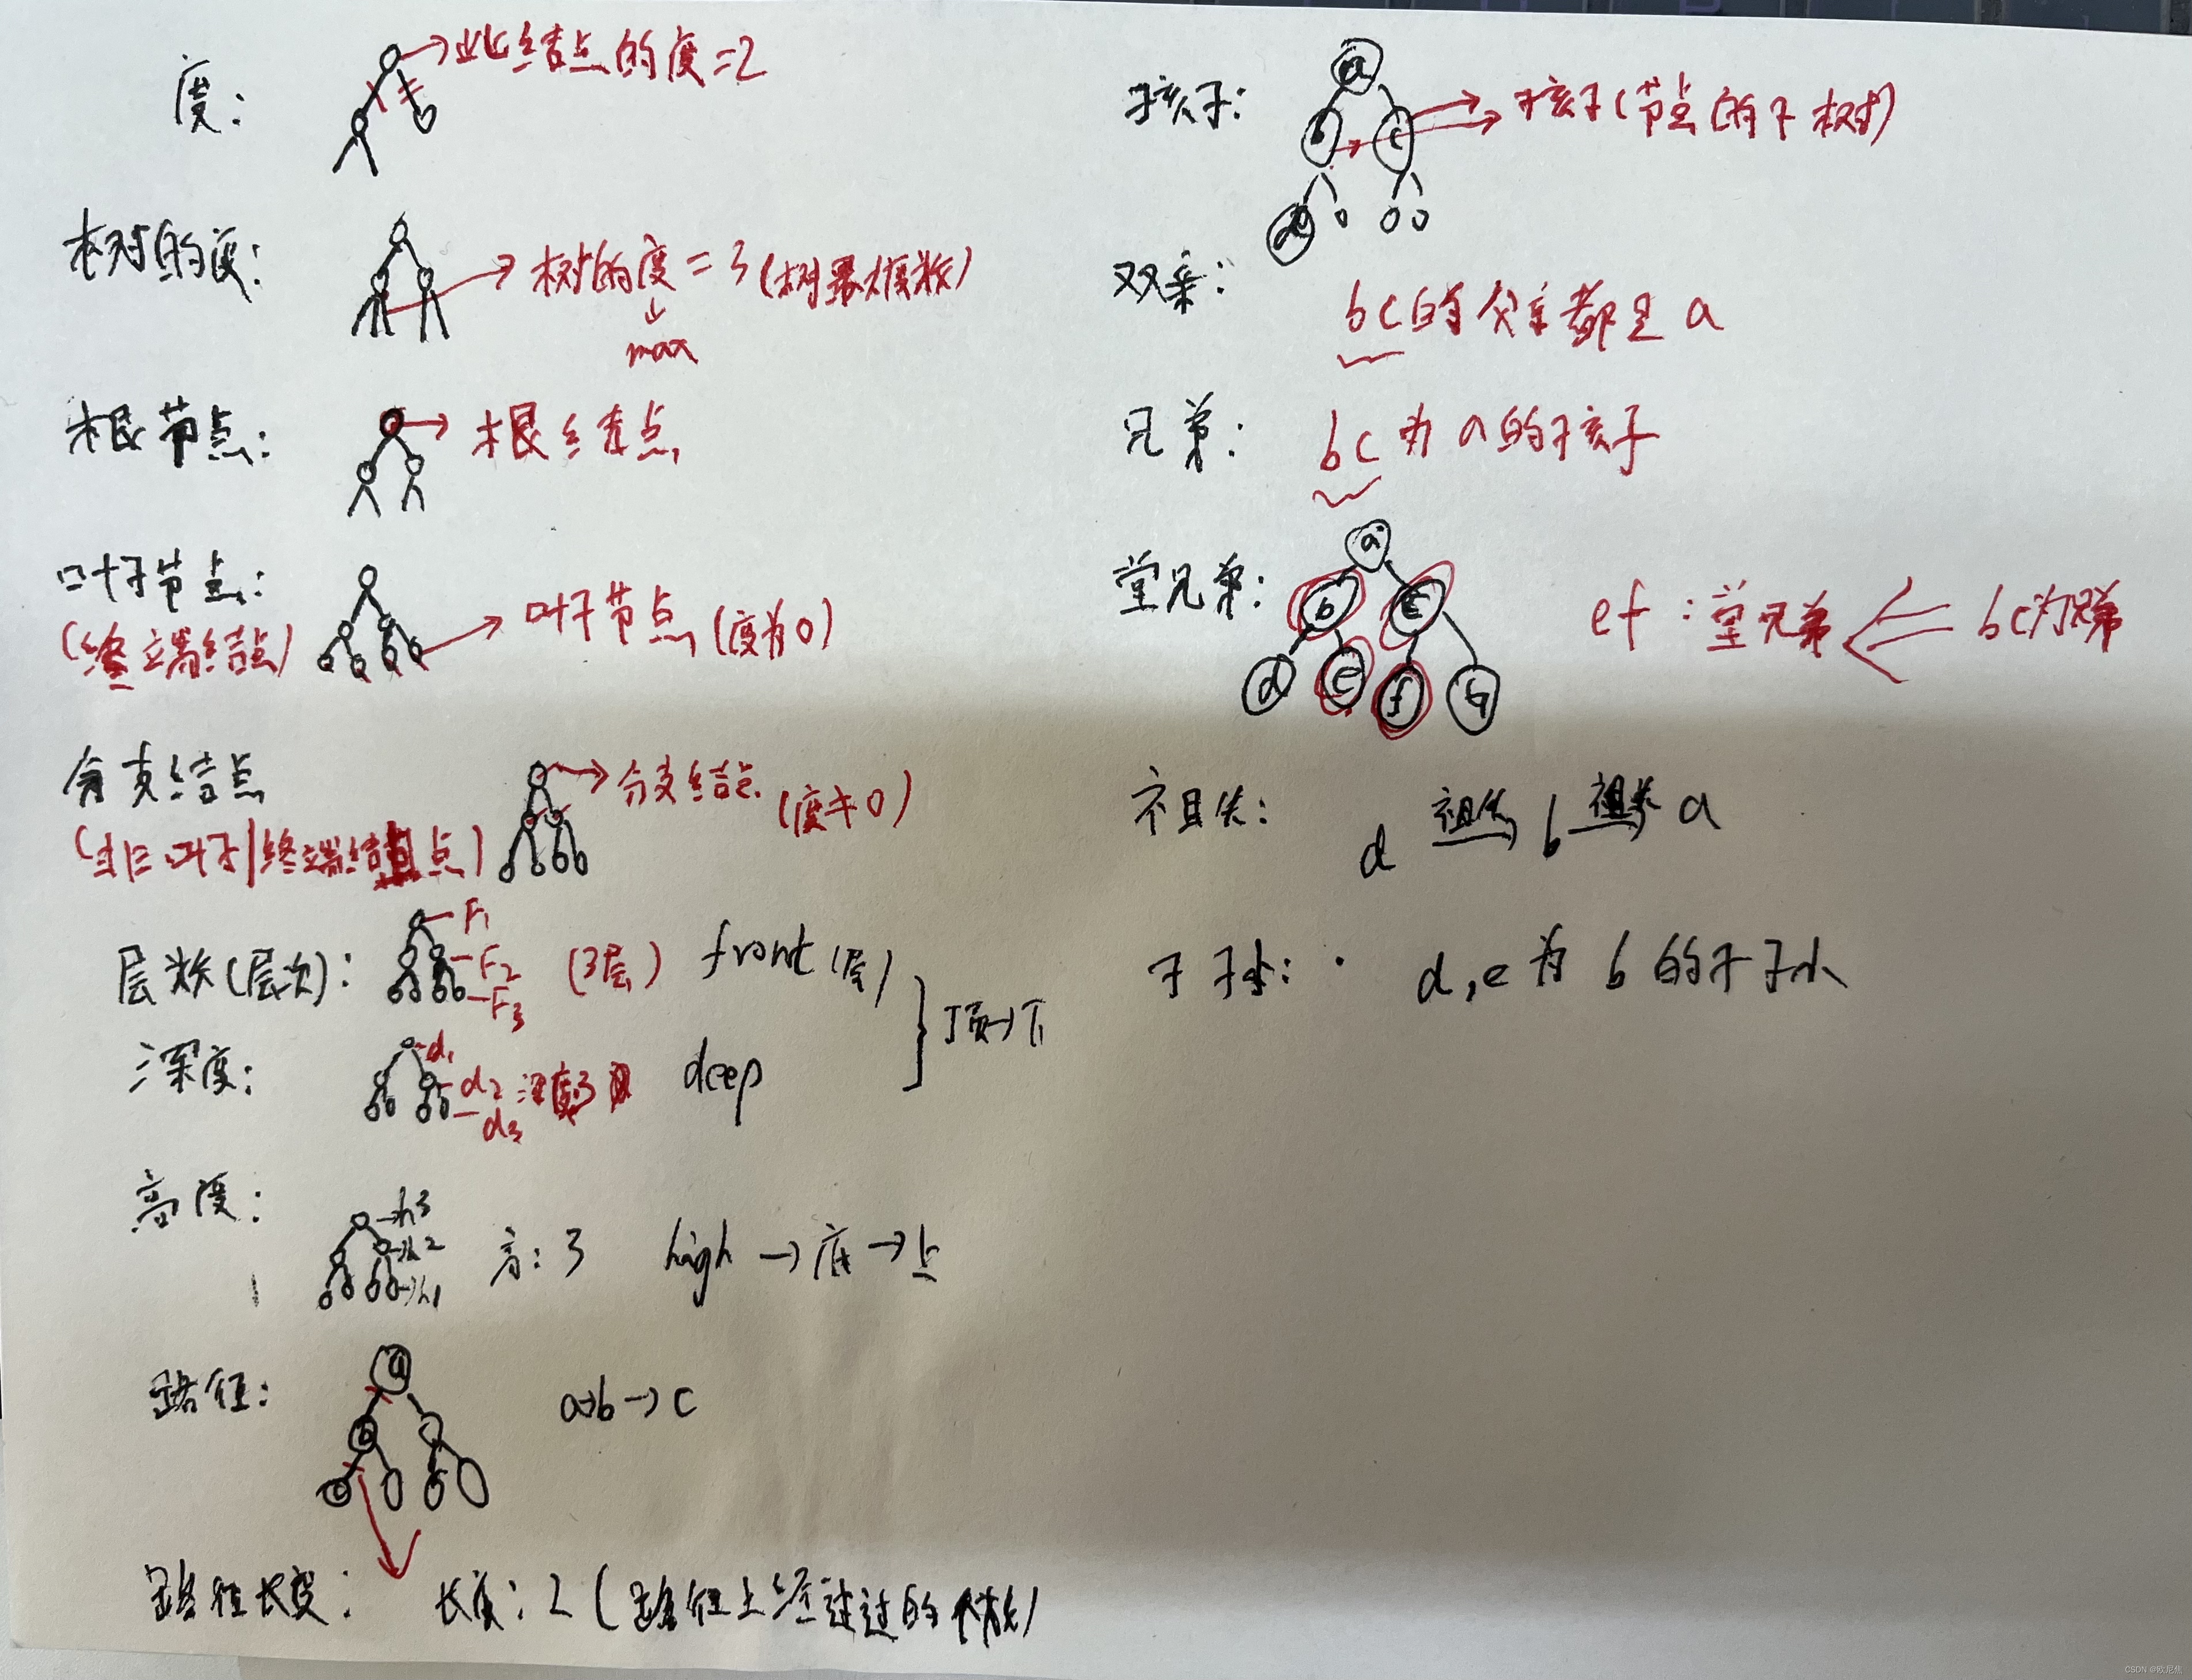 度:
此结点的度=2
树的度:
树的度=3(树最大度数)
max
根节点:
根结点
叶子节点:
(终端结点)
叶子节点(度为0)
分支结点
(非叶子|终端结点)
分支结点(度≠0)
层数(层次):
F1
F2
F3
(3层)
front(层)
深度:
d1
d2
d3
深度3
deep
顶→下
高度:
h3
h2
h1
高:3 high→底→上
路径:
a
b
c
a→b→c
路径长度:
长度:2(路径上经过的个数)
孩子:
a
b c
d
孩子(节点的子树)
双亲:
bc的父亲都是a
兄弟:
bc为a的孩子
堂兄弟:
a
b c
d e f g
ef:堂兄弟
bc为兄弟
祖先:
d 祖先 b 祖先 a
子孙:
d,e为b的子孙
CSDN @欧尼焦